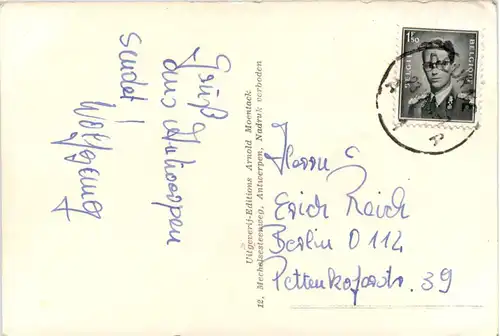 Gruß
aus Antwerpen
sendet!
Wolfgang
Uitgeverij-Editions Arnold Moentack
12, Mechelsesteenweg, Antwerpen, Nadruk verboden
1F50
BELGIE
BELGIQUE
Herrn
Erich Reich
Berlin O 112
Pettenkoferstr. 39